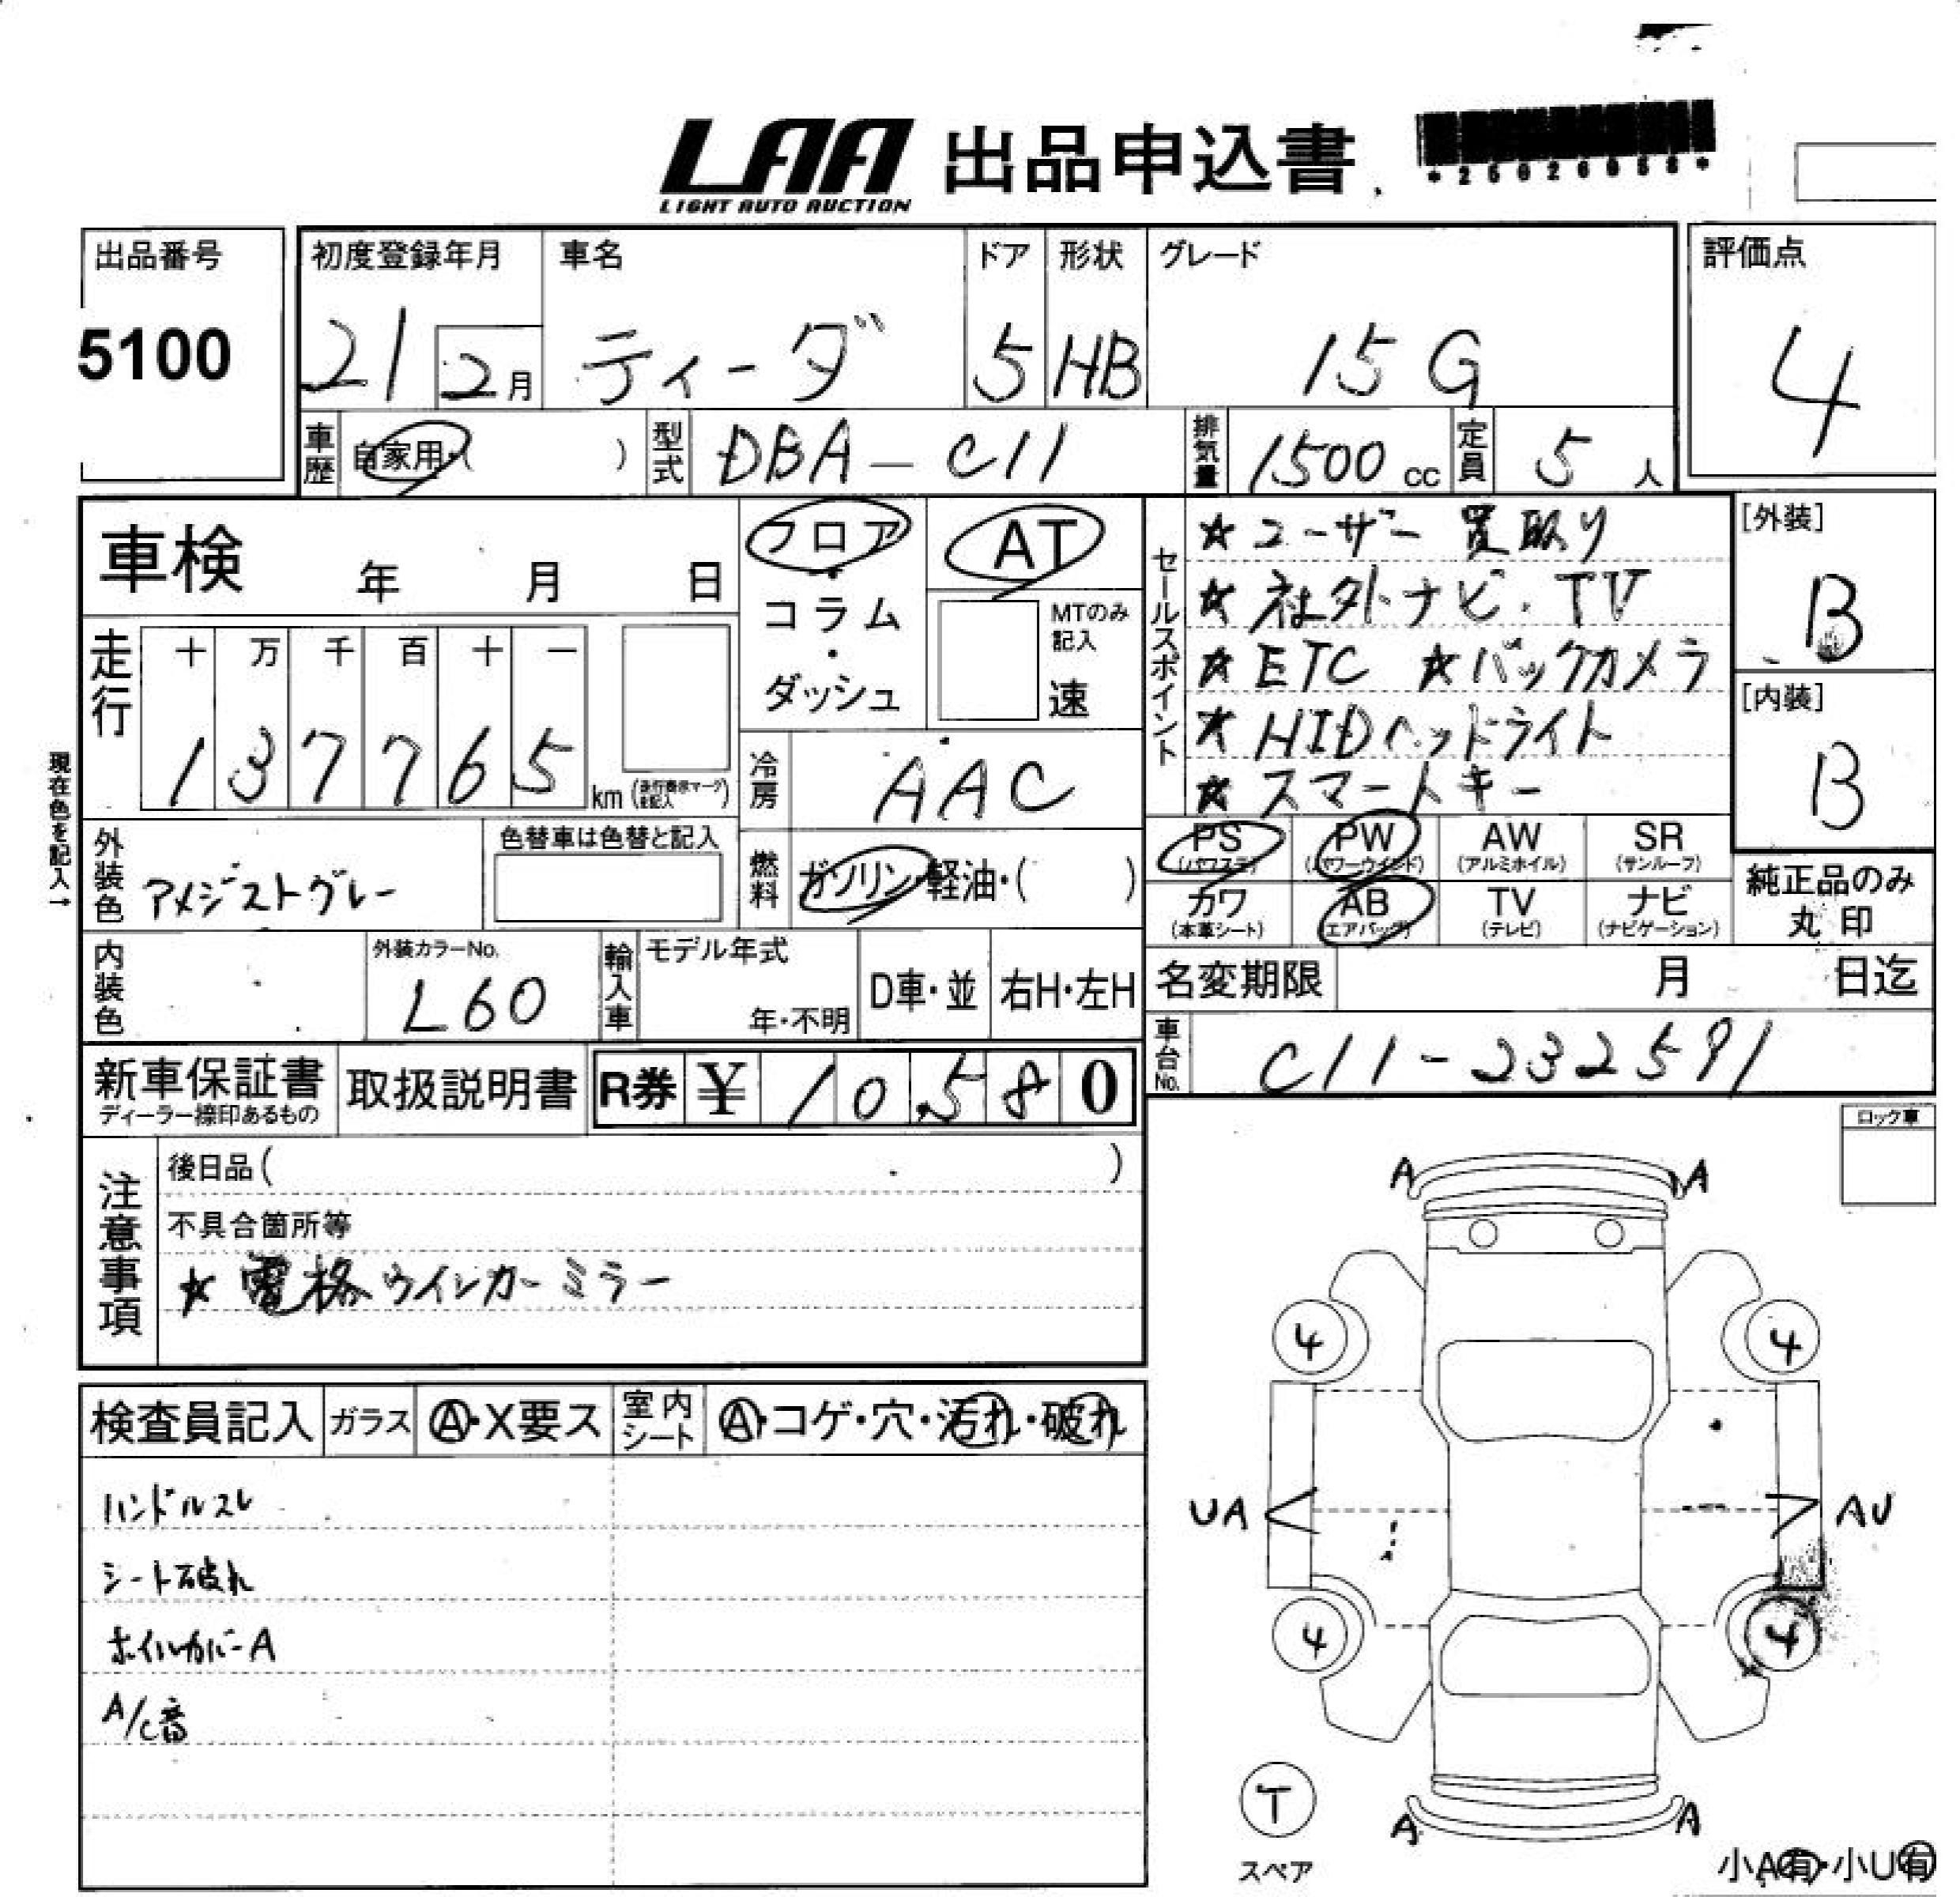 LAA 出品申込書
LIGHT AUTO AUCTION
出品番号
5100
初度登録年月
21 2月
車名
ティーダ
ドア
5
形状
HB
グレード
15G
評価点
4
車歴 自家用・( )
型式 DBA-C11
排気量 1500cc
定員 5人
車検 年 月 日
フロア・コラム・ダッシュ
AT
MTのみ記入
速
セールスポイント
★ユーザー買取り
★社外ナビ・TV
★ETC ★バックカメラ
★HIDヘッドライト
★スマートキー
[外装]
B
[内装]
B
走行
十 万 千 百 十 一
1 3 7 7 6 5 km
冷房 AAC
現在色を記入→
外装色 アメジストグレー
色替車は色替と記入
燃料 ガソリン・軽油・( )
PS (パワステ)
PW (パワーウインド)
AW (アルミホイル)
SR (サンルーフ)
カワ (本革シート)
AB (エアバッグ)
TV (テレビ)
ナビ (ナビゲーション)
純正品のみ丸印
内装色
外装カラーNo.
L60
輸入車
モデル年式
年・不明
D車・並
右H・左H
名変期限 月 日迄
車台No. C11-232591
新車保証書
ディーラー捺印あるもの
取扱説明書
R券 ¥ 10,580
ロック車
注意事項
後日品( )
不具合箇所等
★電格ウインカーミラー
検査員記入
ガラス A・X要ス
室内シート A・コゲ・穴・汚れ・破れ
ハンドルスレ
シート破れ
ホイルカバーA
A/C音
A A
4 4
UA AU
4 4
T
スペア
A A
小A有・小U有